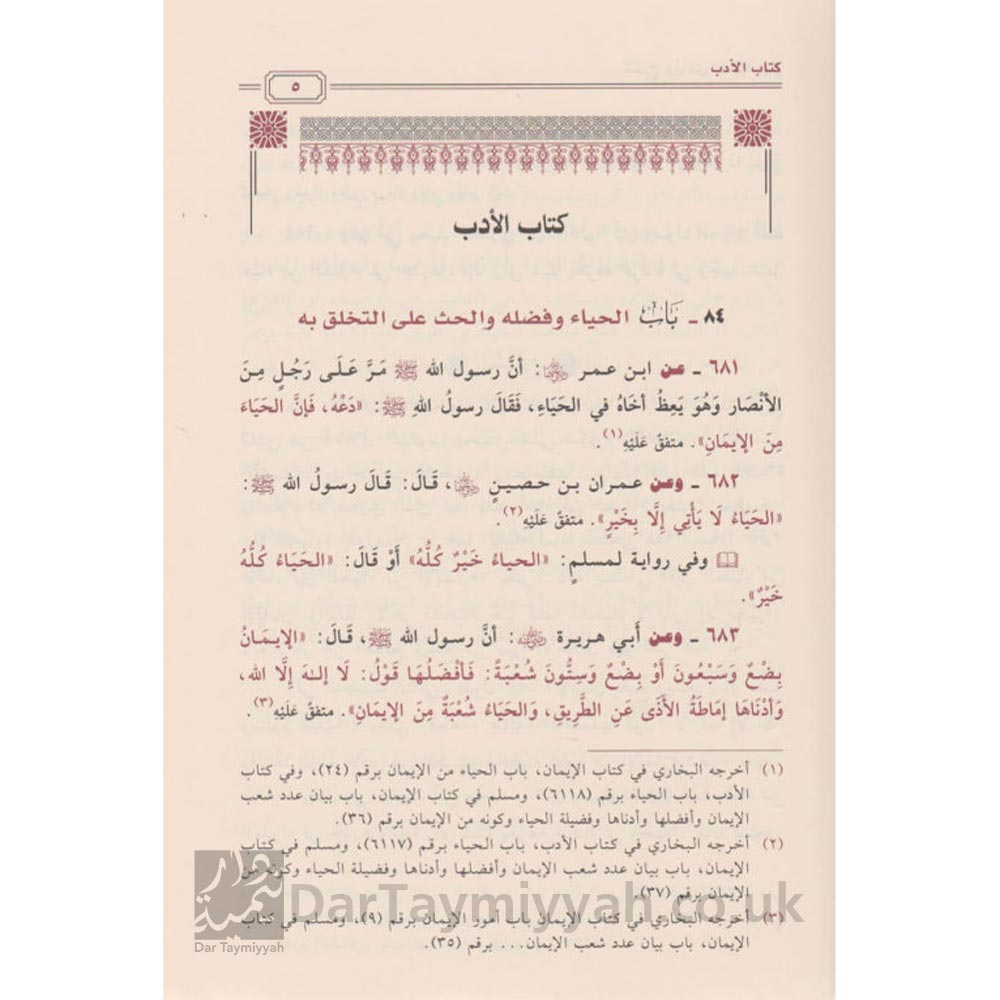 كتاب الأدب
٥
كتاب الأدب
٨٤ ـ بَابُ الحياء وفضله والحث على التخلق به
٦٨١ ـ عن ابن عمر رضي الله عنهما: أنَّ رسول الله ﷺ مَرَّ عَلَى رَجُلٍ مِنَ
الأَنْصَار وَهُوَ يَعِظُ أخَاهُ في الحَيَاءِ، فَقَالَ رسولُ اللهِ ﷺ: «دَعْهُ، فَإنَّ الحَيَاءَ
مِنَ الإيمَانِ». متفقٌ عَلَيْهِ(١).
٦٨٢ ـ وعن عمران بن حصينٍ رضي الله عنهما، قَالَ: قَالَ رسولُ الله ﷺ:
«الحَيَاءُ لَا يَأْتِي إلَّا بِخَيْرٍ». متفقٌ عَلَيْهِ(٢).
وفي رواية لمسلمٍ: «الحياءُ خَيْرٌ كُلُّهُ» أَوْ قَالَ: «الحَيَاءُ كُلُّهُ
خَيْرٌ».
٦٨٣ ـ وعن أَبي هريرة رضي الله عنه: أنَّ رسول الله ﷺ، قَالَ: «الإيمَانُ
بِضْعٌ وَسَبْعُونَ أَوْ بِضْعٌ وَسِتُّونَ شُعْبَةً: فَأفْضَلُهَا قَوْلُ: لَا إلهَ إلَّا الله،
وَأدْنَاهَا إمَاطَةُ الأَذَى عَنِ الطَّرِيقِ، وَالحَيَاءُ شُعْبَةٌ مِنَ الإيمَانِ». متفقٌ عَلَيْهِ(٣).
(١) أخرجه البخاري في كتاب الإيمان، باب الحياء من الإيمان برقم (٢٤)، وفي كتاب
الأدب، باب الحياء برقم (٦١١٨)، ومسلم في كتاب الإيمان، باب بيان عدد شعب
الإيمان وأفضلها وأدناها وفضيلة الحياء وكونه من الإيمان برقم (٣٦).
(٢) أخرجه البخاري في كتاب الأدب، باب الحياء برقم (٦١١٧)، ومسلم في كتاب
الإيمان، باب بيان عدد شعب الإيمان وأفضلها وأدناها وفضيلة الحياء وكونه من
الإيمان برقم (٣٧).
(٣) أخرجه البخاري في كتاب الإيمان باب أمور الإيمان برقم (٩)، ومسلم في كتاب
الإيمان، باب بيان عدد شعب الإيمان... برقم (٣٥).
دار تيمية
Dar Taymiyyah
DarTaymiyyah.co.uk